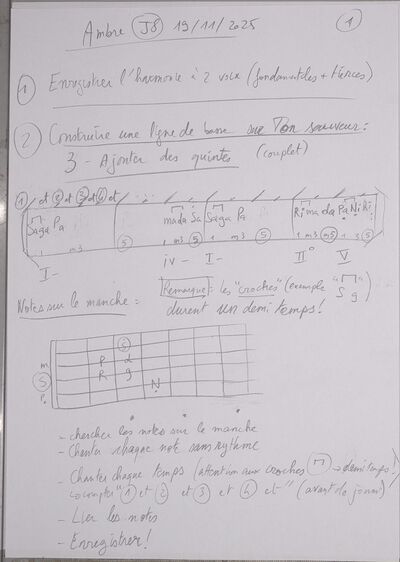 Ambre J8 19/11/2025 1
1 Enregistrer l'harmonie à 2 voix (fondamentales + tierces)
2 Construire une ligne de basse sur Ton sauveur :
3 - Ajouter des quintes (couplet)
1 et 2 et 3 et 4 et
Saga Pa mada Sa Saga Pa Rimada Pa Ni Ri
1 m3 5 1 m3 5 1 m3 5 1 m3 m5 1 3 5
I- iv- I- II° V
Remarque : les "croches" (exemple "S g")
Notes sur le manche : durent un demi temps !
S
m P d
S R g
P. N
- chercher les notes sur le manche
- Chanter chaque note sans rythme
- Chanter chaque temps (attention aux croches → demi temps !
compter "1 et 2 et 3 et 4 et" (avant de jouer)
- Lier les notes
- Enregistrer !